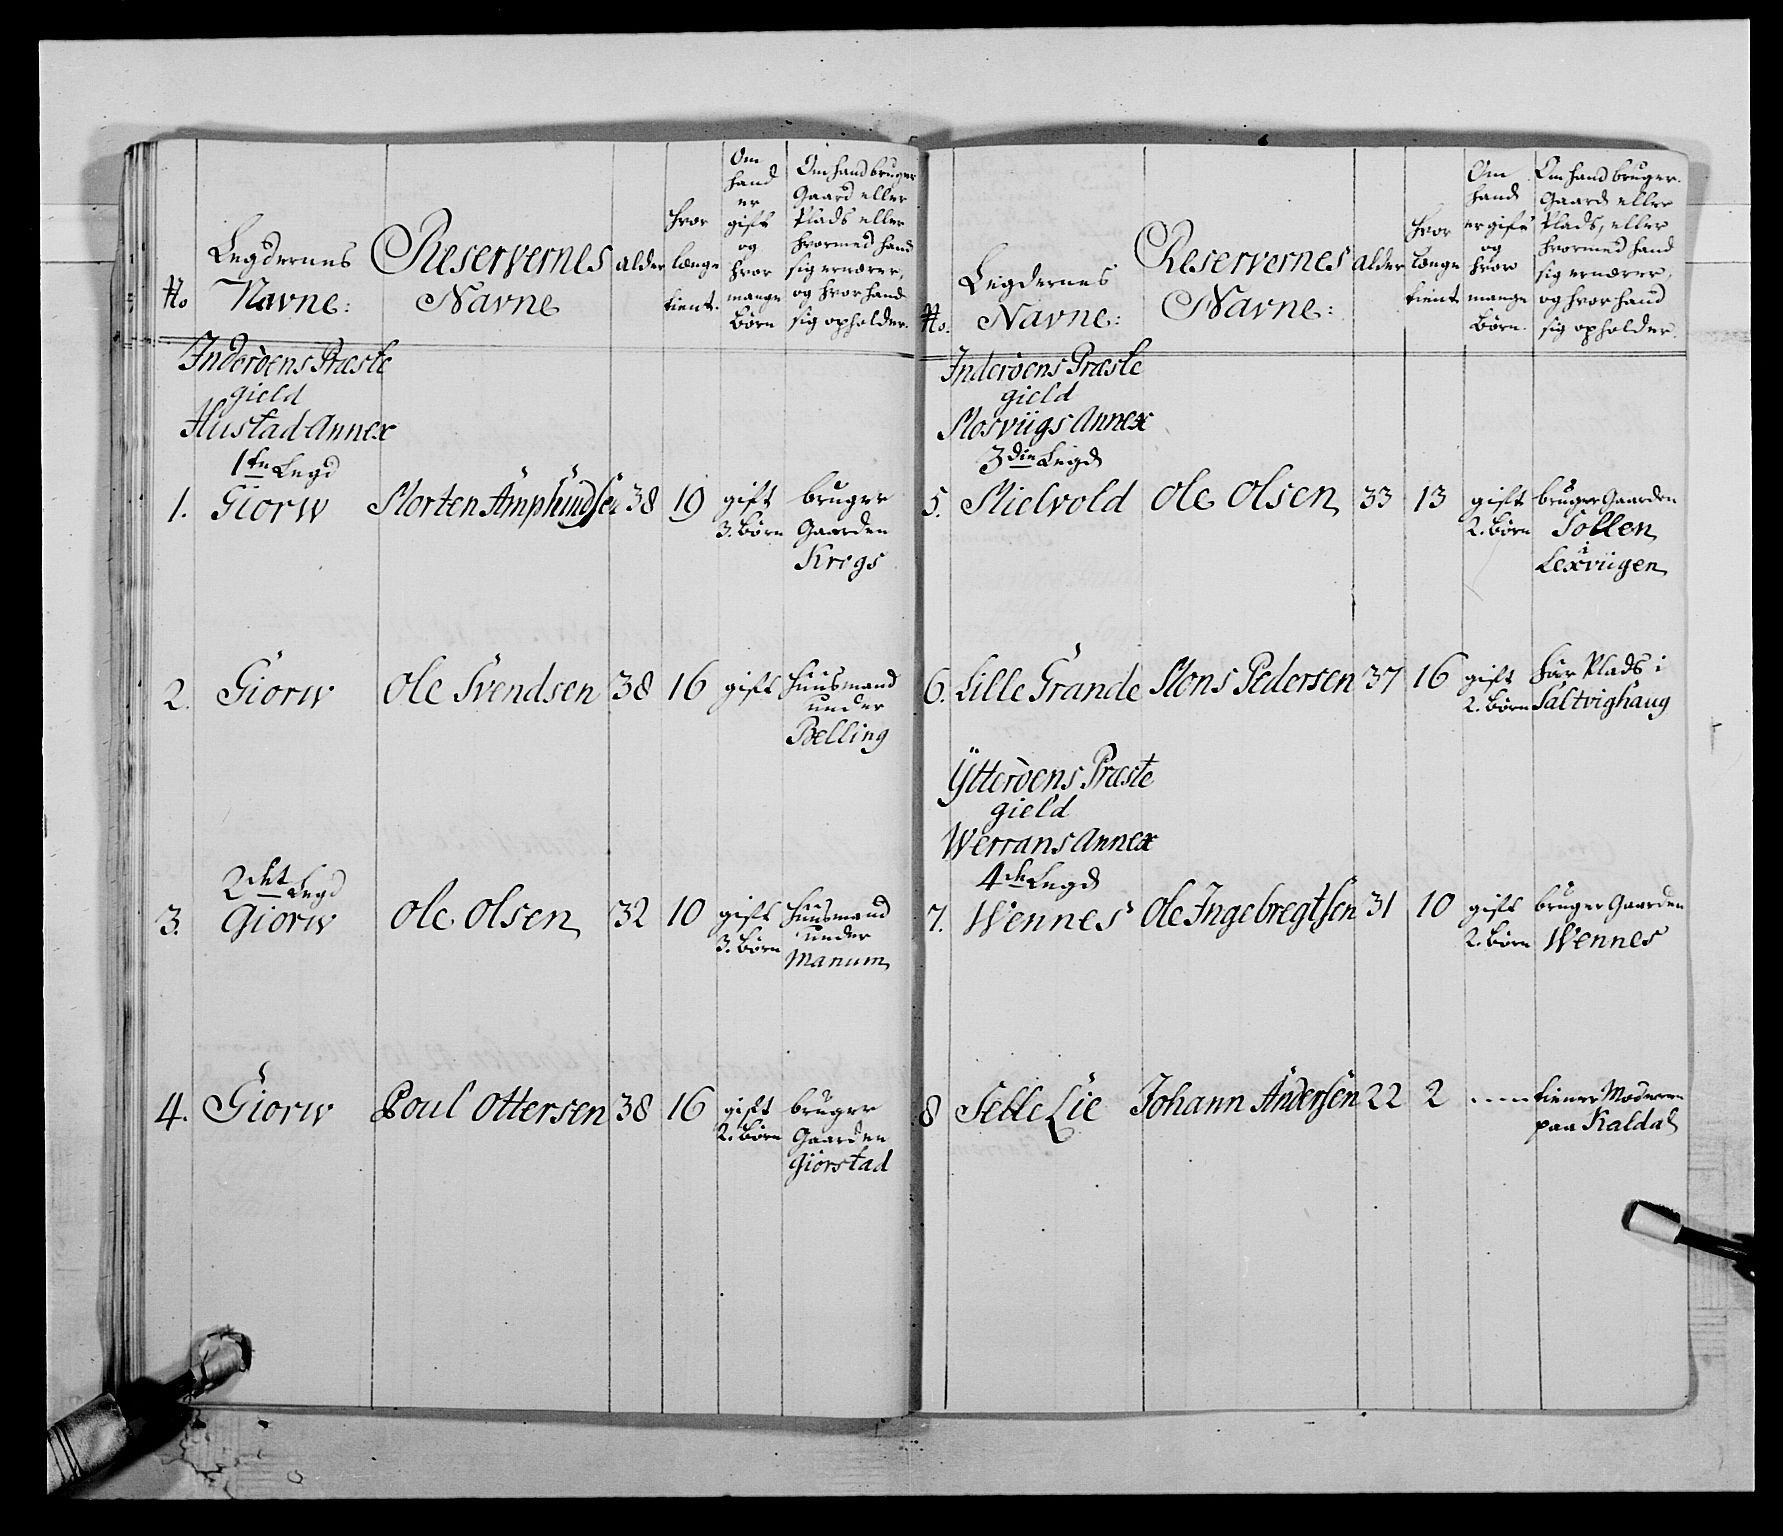 No
Legdernes
Navne:
Reservernes
Navne
alder
hvor
længe
tient.
Om
hand
er
gift
og
hvor
mange
Børn
Om hand bruger
Gaard eller
Plads eller
hvormed hand
sig ernærer,
og hvor hand
sig opholder.
Inderöens Præste
gield
Hustad Annex
1ste Legd
1. Giorw Morten Amphindsen 38 19 gift bruger
3. Børn Gaarden
Krogs
2. Giorw Ole Svendsen 38 16 gift Huusmand
under
Belling
2det Legd
3. Giorw Ole Olsen 32 10 gift Huusmand
3. Børn under
Manum
4. Giorw Poul Ottersen 38 16 gift bruger
2. Børn Gaarden
Giorstad
No.
Legdernes
Navne:
Reservernes
Navne:
alder
hvor
længe
tient
Om
hand
er gift
og
hvor
mange
Børn.
Om hand bruger
Gaard eller
Plads, eller
hvormed hand
sig ernærer,
og hvor hand
sig opholder.
Inderöens Præste
gield
Mosviigs Annex
3die Legd
5. Mielvold Ole Olsen 33 13 gift bruger Gaarden
2. Børn Sollen
i
Lexviigen
6. Lille Grande Mons Pedersen 37 16 gift har Plads i
2. Børn Saltvighaug
Ytteröens Præste
gield
Werrans Annex
4de Legd
7. Wennes Ole Ingebregtsen 31 10 gift bruger Gaarden
2. Børn Wennes
8 Selle Lie Johann Andersen 22 2 ----- tiener Moderen
paa Kaldal